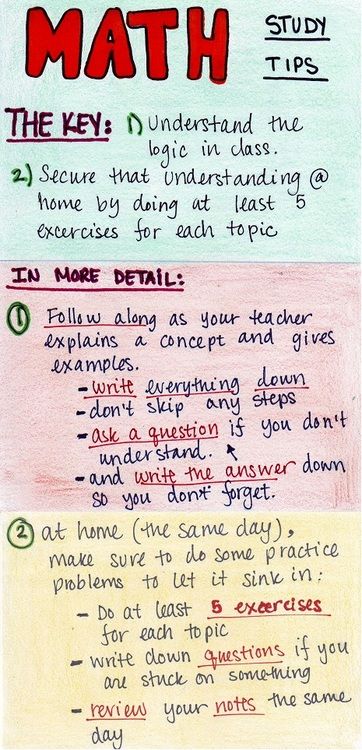 MATH
STUDY
TIPS
THE KEY: 1) Understand the
logic in class.
2) Secure that understanding @
home by doing at least 5
excercises for each topic
IN MORE DETAIL:
1 Follow along as your teacher
explains a concept and gives
examples.
- write everything down
- don't skip any steps
- ask a question if you don't
understand.
- and write the answer down
so you don't forget.
2 at home (the same day),
make sure to do some practice
problems to let it sink in:
- Do at least 5 excercises
for each topic
- write down questions if you
are stuck on something
- review your notes the same
day